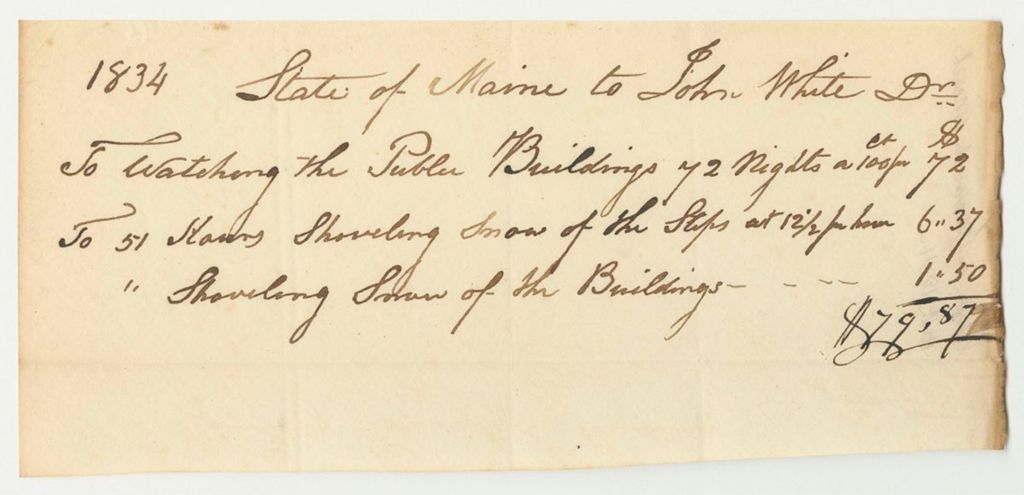 1834 State of Maine to John White Dr
To Watching the Public Buildings 72 Nights a 100ct pr $72
To 51 Hours Shoveling Snow of the Steps at 12½ pr hour 6.. 37
" Shoveling Snow of the Buildings - - - - 1.. 50
$79,87